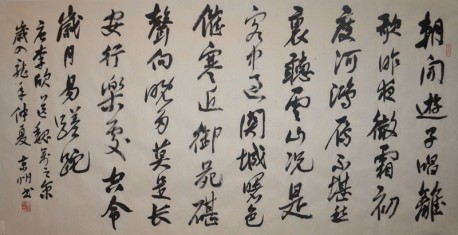 朝聞遊子唱離
歌昨夜微霜初
度河鴻雁不堪愁
裏聽雲山況是
客中過關城曙色
催寒近御苑碪
聲向晚多莫是長
安行樂處空令
歲月易蹉跎
唐李頎送魏万之京
歲次龍年仲夏 书